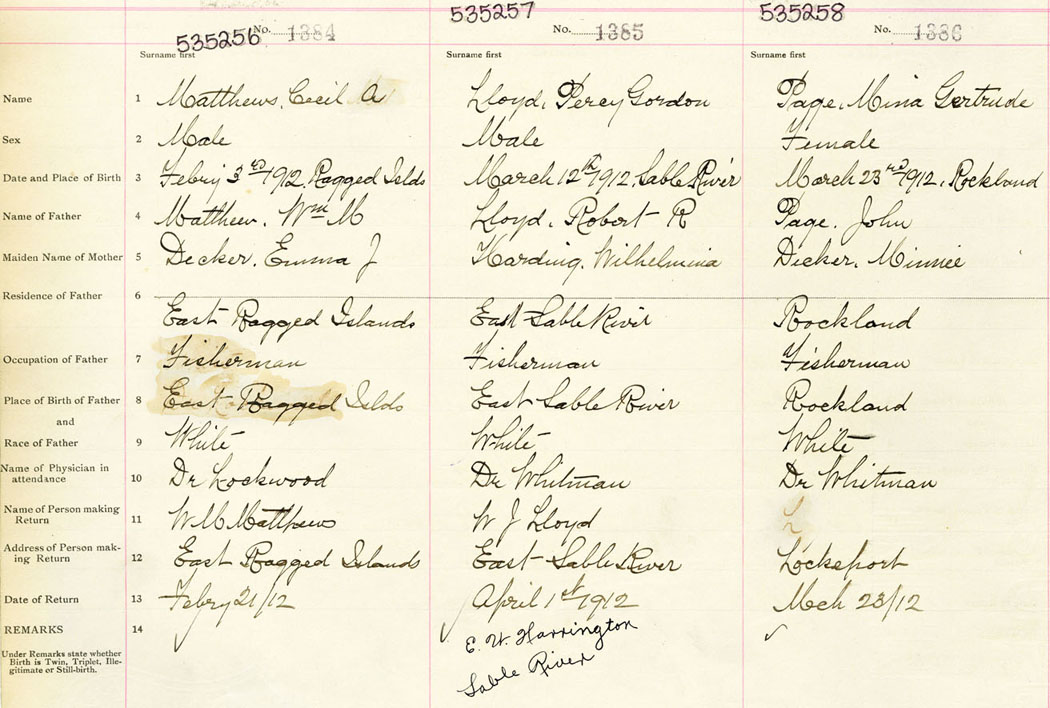 535256 No. 1384
535257 No. 1385
535258 No. 1386
Surname first Surname first Surname first
Name 1 Matthews, Cecil A Lloyd, Percy Gordon Page, Mina Gertrude
Sex 2 Male Male Female
Date and Place of Birth 3 Febry 3rd 1912, Ragged Islds March 12th 1912, Sable River March 23rd 1912, Rockland
Name of Father 4 Matthew, Wm M Lloyd, Robert R Page, John
Maiden Name of Mother 5 Decker, Emma J Harding, Wilhelmina Decker, Minnie
Residence of Father 6 East Ragged Islands East Sable River Rockland
Occupation of Father 7 Fisherman Fisherman Fisherman
Place of Birth of Father 8 East Ragged Islds East Sable River Rockland
and
Race of Father 9 White White White
Name of Physician in
attendance 10 Dr Lockwood Dr Whitman Dr Whitman
Name of Person making
Return 11 W M Matthews W J Lloyd
Address of Person mak-
ing Return 12 East Ragged Islands East Sable River Lockeport
Date of Return 13 Febry 21/12 April 1st 1912 Mch 23/12
REMARKS 14 E. W. Harrington
Sable River
Under Remarks state whether
Birth is Twin, Triplet, Ille-
gitimate or Still-birth.